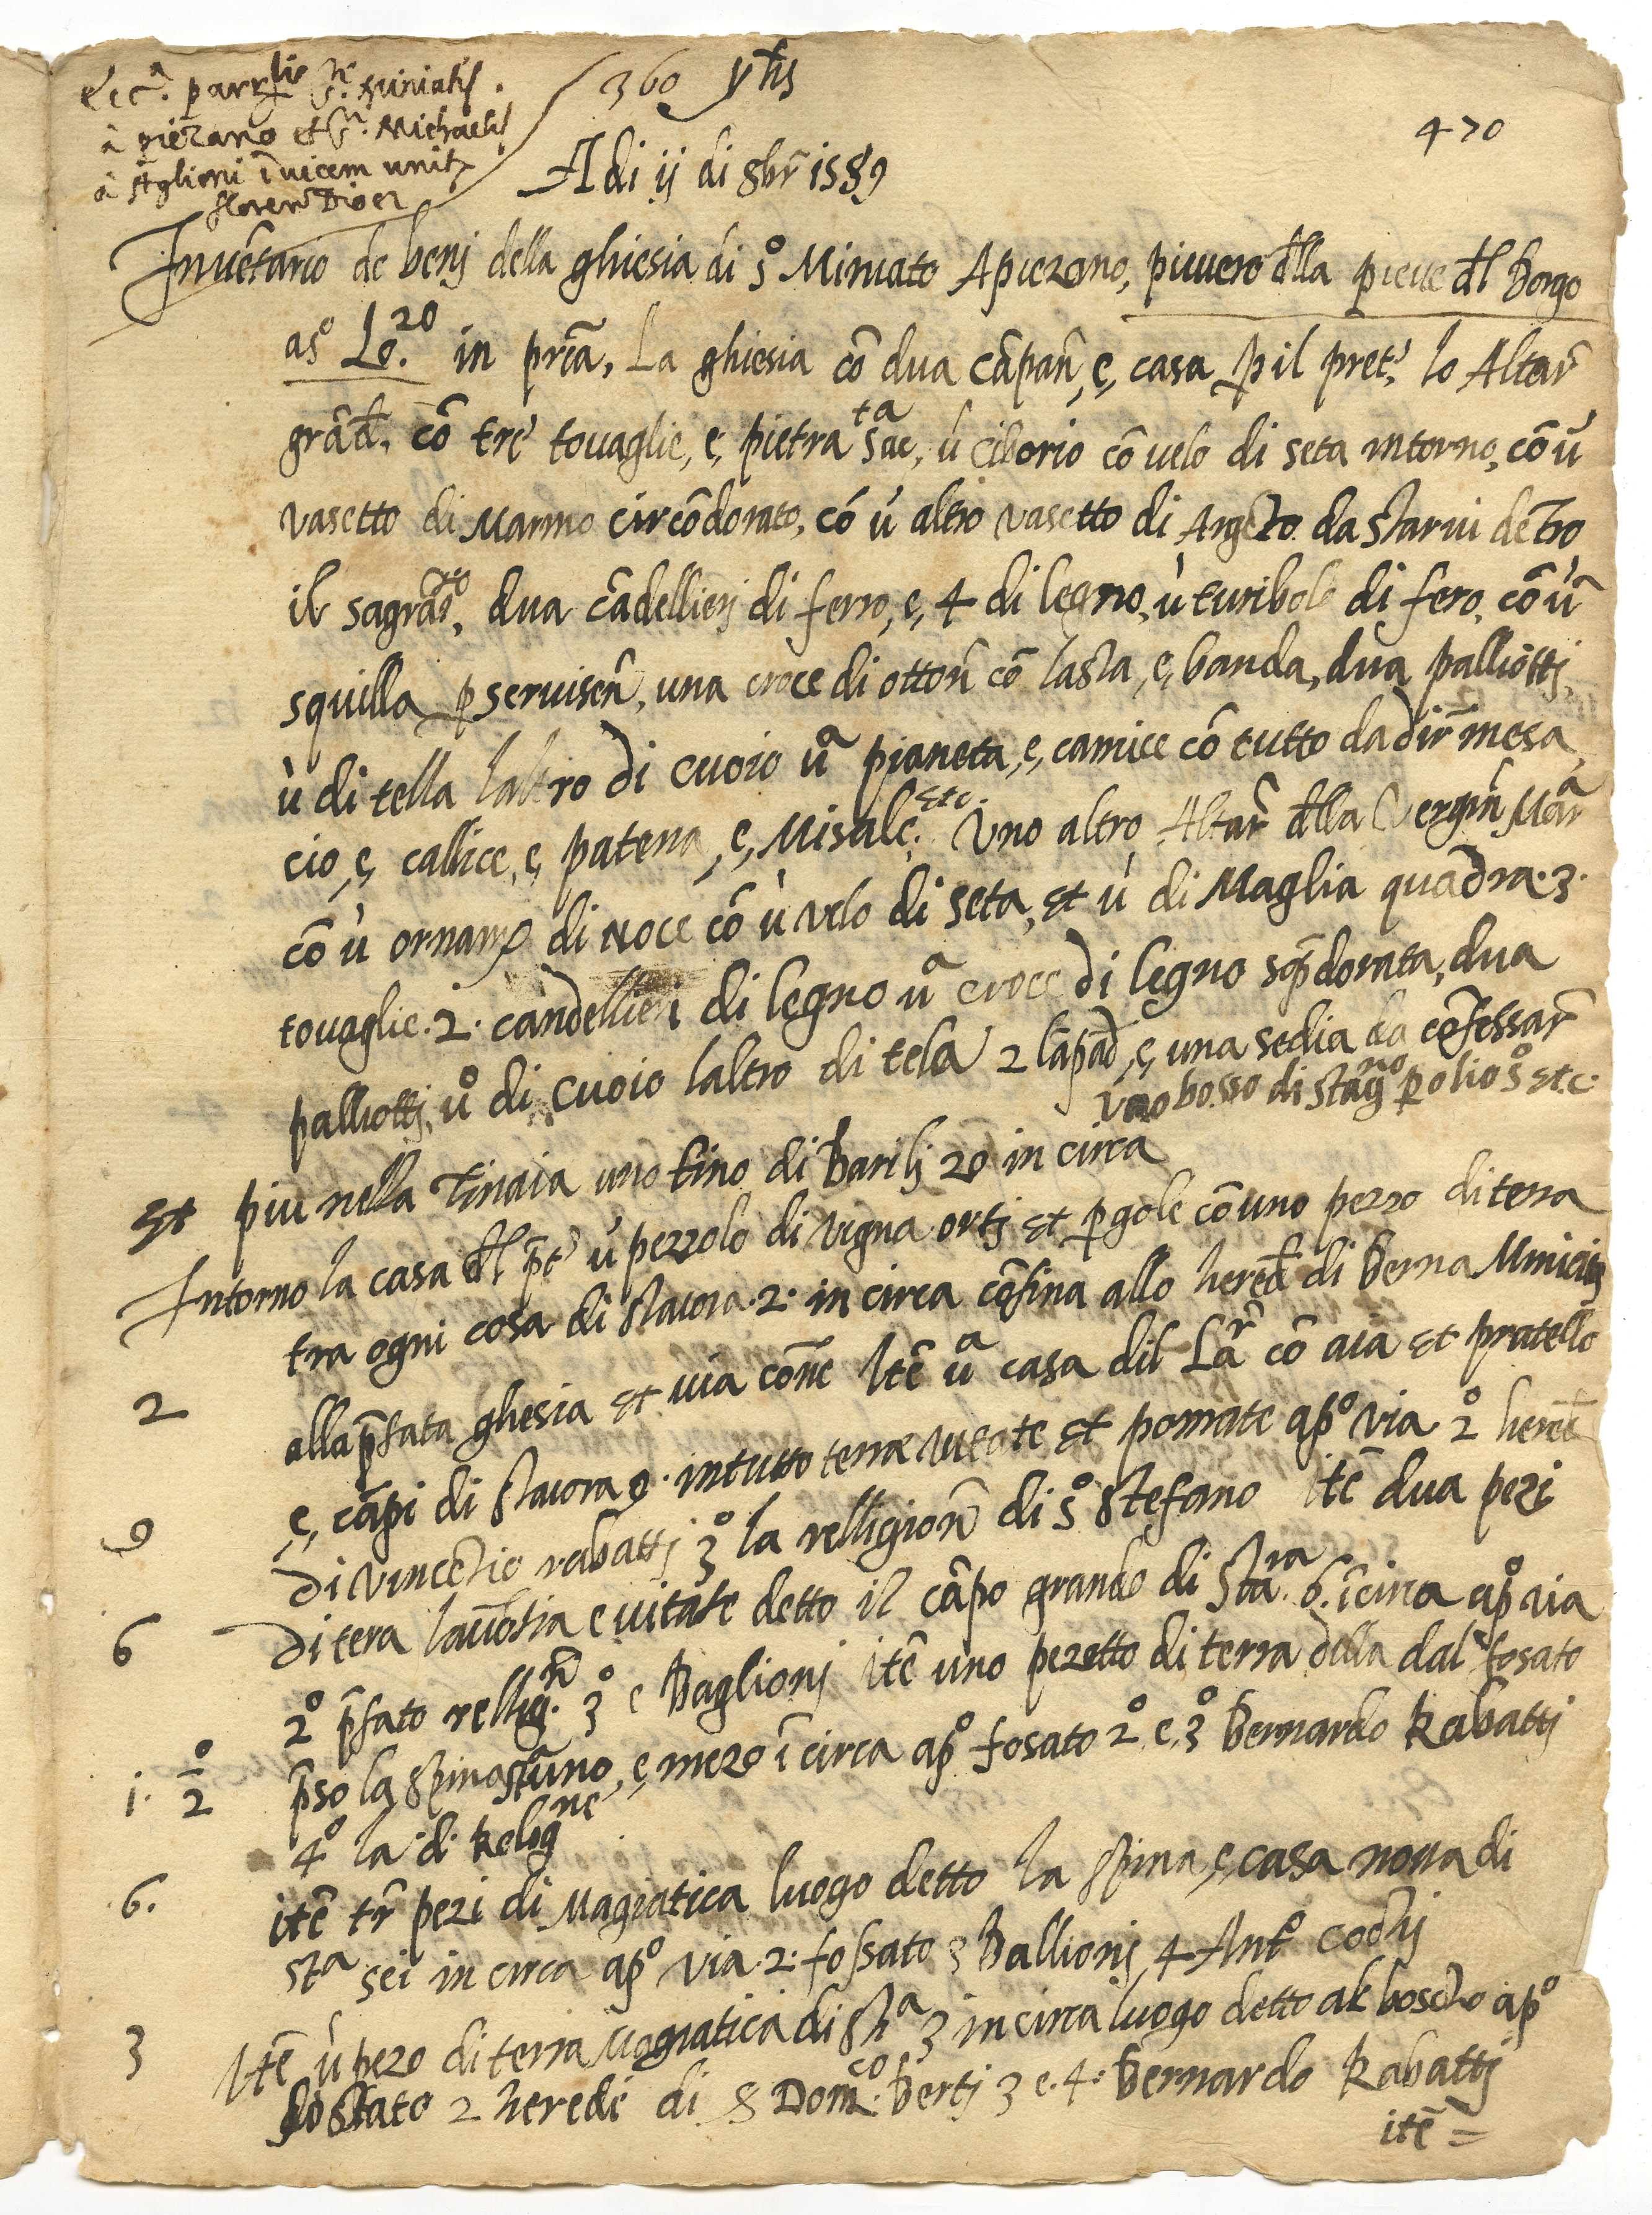 Ecc.ª parrlis S.ti Miniatis.
à piezano et S.ti Michaelis
à stiglioni īuicem unit
floren Dioer
360 yhs
470
Adi ij di 9br̄ 1589
Inuētario de benj della ghiesia di sº Miniato Apiezano, piuuero dlla pieue dl borgo
asº Lo.º 20 in prīa, La ghiesia cō dua cāpan̄, e, casa p il pret', lo Altar̄
grād, cō tre' touaglie, e, pietra sac.ta, ù Ciborio cō uelo di seta intorno, cō ù
vasetto di Marmo circōdorato, có ù altro vasetto di Argēto da starui dētro
il sagrā.to, dua cādellierj di ferro, e, 4 di legno, ù turibolo di fero, cō un̄
squilla p seruisen̄, una croce di otton̄ cō lasta, e, banda, dua palliottj,
ù di tella laltro di cuoio uª pianeta, e, camice cō tutto da dir̄ mesa,
cio, e, callice, e, patena, e, Misale, etc. Uno altro Altar̄ dlla Vergin̄ Marª
cō ù ornamº di noce cō ù velo di seta, et ù di Maglia quadra .3.
touaglie .2. candellieri di legno uª croce di legno sopdorata, dua
palliottj, uº di cuoio laltro di tela 2 lāpad, e, una sedia da cōfessar̄
Uno bosso di stagno p olio sº etc.
Et piu nella Tinaia uno tino di Barilj 20 in circa
Intorno la casa dl p̄t' ù pezzolo di vigna ortj et pgole cō uno pezzo di terra
tra ogni cosa di staiora .2. in circa cōfina allo hered di Berna Miniatj
2 alla p̄fata ghesia et uia cōne Itē uª casa dil Lar̄ cō aia et pratello
e, cāpi di staiora 9. intutto terræ vitate et pomate apº via 2º hered
9 di vincētio rabattj 3º la relligion̄ di sº Stefano itē dua pezi
6 di tera lauōtia e vitate detto il cāpo grande di sta.ra 6. īcirca apº via
2º p̄fato rellig.n̄ 3º e Baglionj itē uno pezetto di terra dlla dal fosato
i. º/2 p̄so la spina st uno, e, mezo ī circa apº fosato 2º e, 3º Bernardo Rabattj
4º la .d. Relig.ne
6. itē tr̄ pezi di Magiatica luogo detto la spina, e, casa noua di
stª sei in circa apº via 2: fossato 3 Ballionj, 4 Antº cochj
3 Itē ù pezo di terra Magiatica di stª 3 in circa luogo detto al boscho apº
fossato 2 heredi di S Dom.co Bertj 3 e. 4: Bernardo Rabattj
itē =